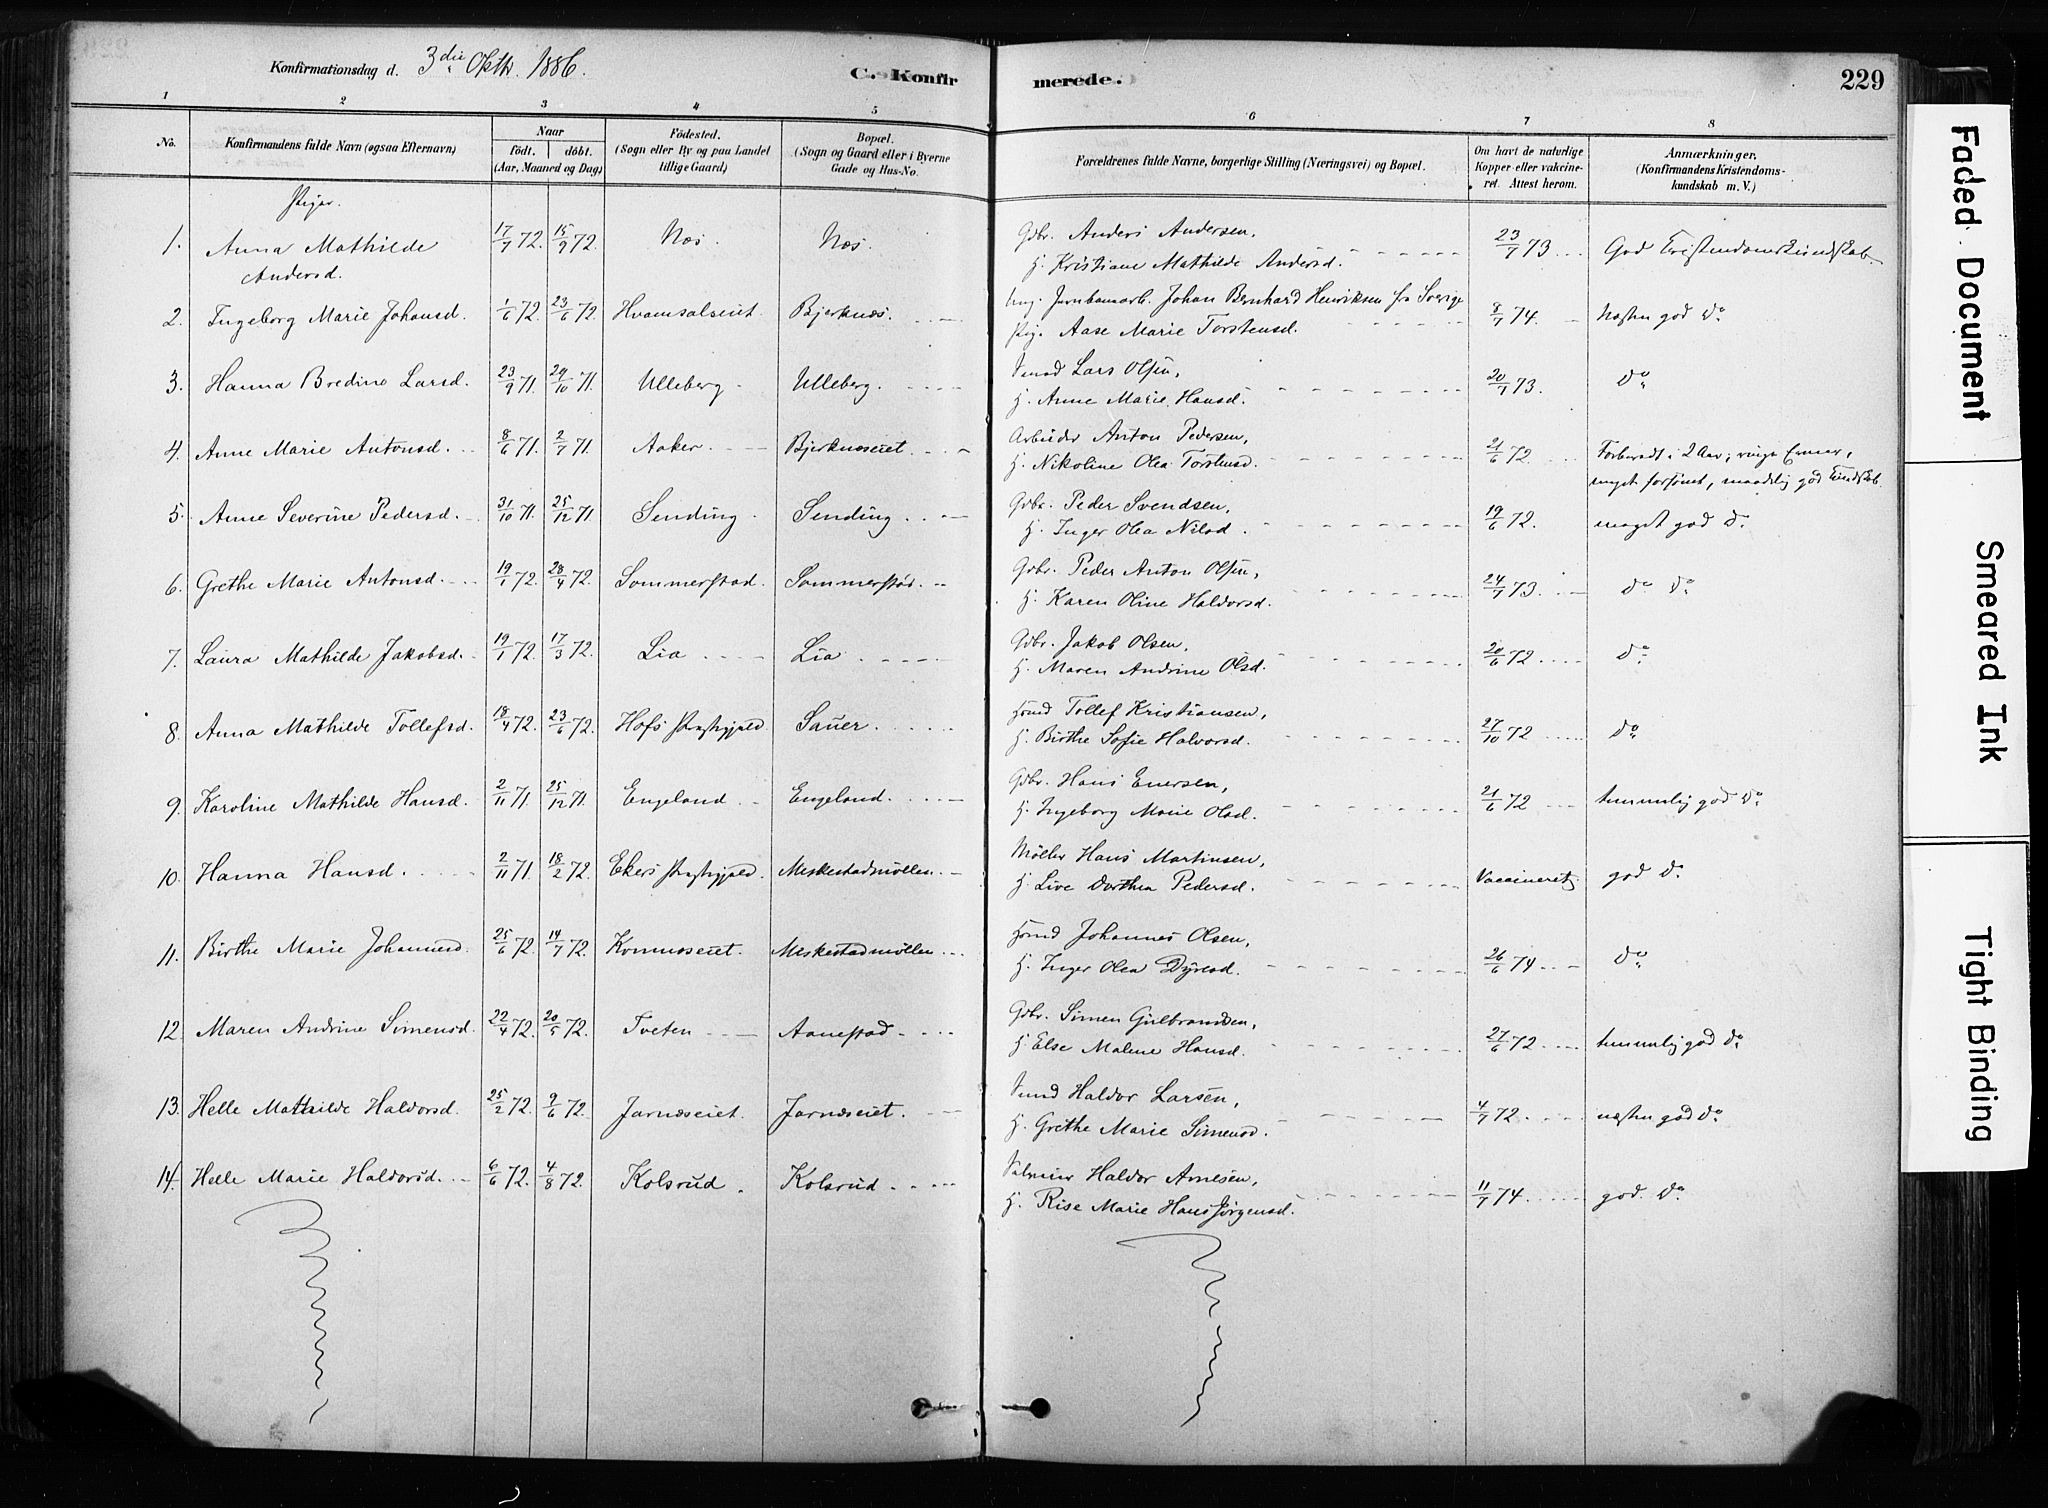 Konfirmationsdag d. 3die Oktbr. 1886.
C. Konfirmerede.
229
1 2 3 4 5 6 7 8
No.
Konfirmandens fulde Navn (ogsaa Efternavn)
Naar
födt. döbt.
(Aar, Maaned og Dag)
Födested.
(Sogn eller By og paa Landet
tillige Gaard)
Bopæl.
(Sogn og Gaard eller i Byerne
Gade og Hus-No.
Forældrenes fulde Navne, borgerlige Stilling (Næringsvei) og Bopæl.
Om havt de naturlige
Kopper eller vakcine-
ret. Attest herom.
Anmærkninger.
(Konfirmandens Kristendoms-
kundskab m. V.)
Piger.
1. Anna Mathilde Andersd. 17/7 72. 15/9 72. Næs. Næs. Gdbr. Anders Andersen,
H. Kristiane Mathilde Andersd. 23/7 73 God Kristendomskundskab
2. Ingeborg Marie Johansd. 1/6 72. 23/6 72. Hvamsalseiet Bjerknæs. Ung. Jernbanearb. Johan Bernhard Henriksen fra Sverige
Pig. Aase Marie Torstensd. 8/7 74. Næsten god do.
3. Hanna Bredine Larsd. 23/9 71. 29/10 71. Ulleberg Ulleberg. Lars Olsen,
H. Anne Marie Hansd. 20/7 73. do.
4. Anne Marie Antonsd. 8/6 71. 2/7 71. Aaker. Bjerknæseiet. Arbeider Anton Pedersen,
H. Nikoline Olea Torstensd. 21/6 72. Forberedt i 2 Aar; ringe Evner,
meget forsömt, maadelig god Kundskab.
5. Anne Severine Pedersd. 31/10 71. 25/12 71. Sending. Sending. Gdbr. Peder Svendsen,
H. Inger Olea Nilsd. 19/6 72. meget god do.
6. Grethe Marie Antonsd. 19/1 72. 28/4 72. Sommerstad. Sommerstad. Gdbr. Peder Anton Olsen,
H. Karen Oline Haldorsd. 24/7 73. do do.
7. Laura Mathilde Jakobsd. 19/1 72. 17/3 72. Lia Lia Gdbr. Jakob Olsen,
H. Maren Andrine Olsd. 20/6 72 do.
8. Anna Mathilde Tollefsd. 18/4 72. 23/6 72. Hofs Præstegjæld Sauer. Tollef Kristiansen,
H. Birthe Sofie Halvorsd. 27/10 72 do.
9. Karoline Mathilde Hansd. 2/11 71. 25/12 71. Engeland Engeland. Gdbr. Hans Enersen,
H. Ingeborg Marie Olsd. 21/6 72 temmelig god do.
10. Hanna Hansd. 2/11 71. 18/2 72. Ekers Præstegjæld. Meskestadmöllen. Möller Hans Martinsen,
H. Live Dorthea Pedersd. Vaccineret god do.
11. Birthe Marie Johannesd. 25/6 72. 14/7 72. Komnæseiet. Meskestadmöllen Johannes Olsen,
H. Inger Olea Dyresd. 26/6 74 do.
12. Maren Andrine Simensd. 22/4 72. 20/5 72. Tveten Aanestad. Gdbr. Simen Gulbrandsen,
H. Else Malene Hansd. 27/6 72 temmelig god do.
13. Helle Mathilde Haldorsd. 25/2 72. 9/6 72. Jarnæseiet. Jarnæseiet. Haldor Larsen,
H. Grethe Marie Simensd. 4/7 72. næsten god do.
14. Helle Marie Haldorsd. 6/6 72. 4/8 72. Kolsrud. Kolsrud. Haldor Arnesen,
H. Rise Marie Hans Jörgensd. 11/7 74 god do.
Faded Document
Smeared Ink
Tight Binding